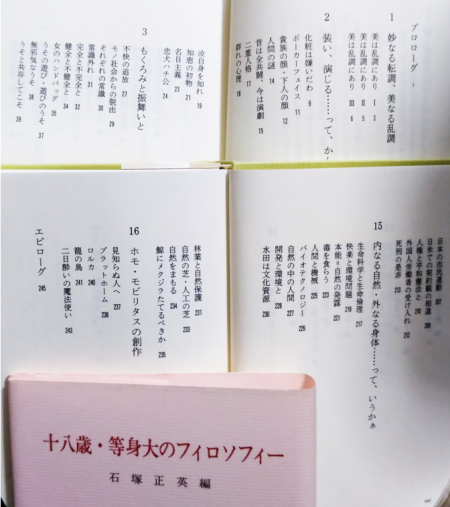 プロローグ
1 妙なる転調、美なる乱調
美は乱調にあり Ⅰ 3
美は乱調にあり Ⅱ 5
美は乱調にあり Ⅲ 6
2 装い、演じる……って、か
化粧は嫌いだわ 9
ポーカーフェイス 11
貴族の顔・下人の顔 12
人間の謎 14
昔は全共闘、今は演劇 15
二重人格 17
群れの心理 18
汝自身を知れ 19
知恵の初物 21
名目主義 23
忠犬ハチ公 24
3 もくろみと振舞いと
不快の追放 27
モノ社会からの脱出 28
それぞれの常識 30
常識外れ 31
完全と不完全と 32
健全と不健全と 34
女のハンドバッグ 35
うその遊び・遊びのうそ 37
無邪気なうそ 38
うそと共存してこそ 39
日本の市民運動 207
日米での契約観の相違 208
人権と平和憲法と
外国人労働者の受け入れ
死刑の是非 213
15 内なる自然・外なる身体……って、いうかぁ
生命科学と生命倫理 217
快楽と環境問題 219
本能=自然の発露 221
毒を食らう 223
人間と機械 225
バイオテクノロジー
自然の中の人間 227
開発と環境と 229
水田は文化資源 230
林業と自然保護 231
自然の芝・人工の芝 233
自然をまもる 234
鯨にメクジラたてるべきか 235
16 ホモ・モビリタスの創作
見知らぬ人へ 237
プラットホーム 238
ロルカ 240
籠の鳥 241
二日酔いの魔法使い 243
エピローグ 245
十八歳・等身大のフィロソフィー
石塚正英編